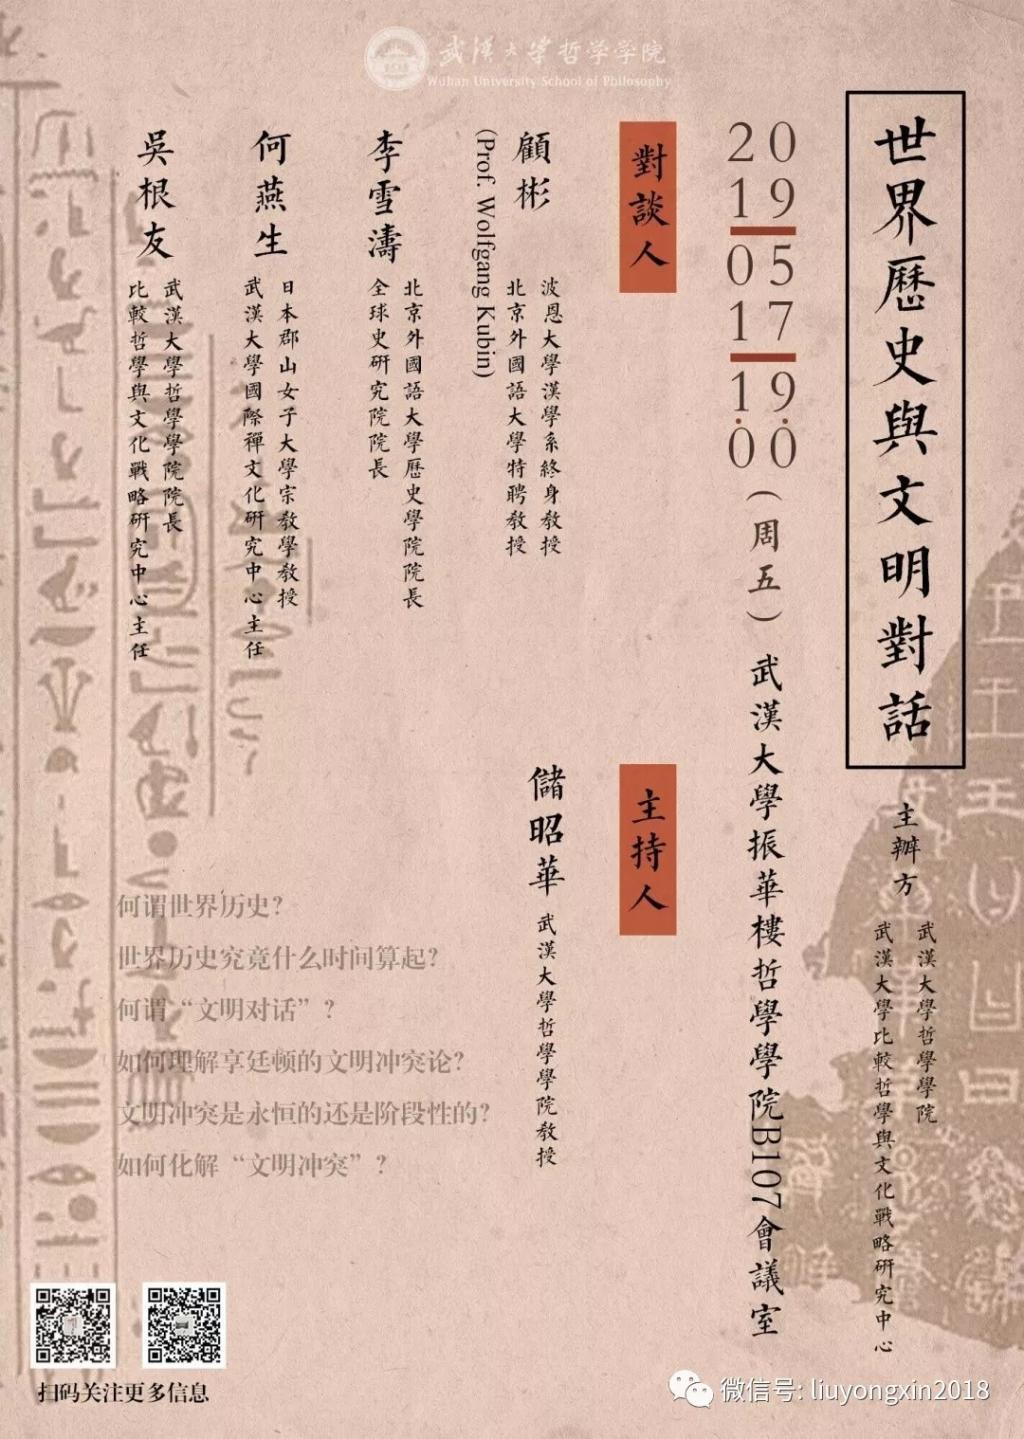 武漢大學哲学学院
Wuhan University School of Philosophy
世界歷史與文明對話
主辦方
武漢大學哲學學院
武漢大學比較哲學與文化戰略研究中心
2019
0517
19:00
(周五)武漢大學振華樓哲學學院B107會議室
對談人
顧彬
(Prof. Wolfgang Kubin)
波恩大學漢學系終身教授
北京外國語大學特聘教授
李雪濤
北京外國語大學歷史學院院長
全球史研究院院長
何燕生
日本郡山女子大學宗教學教授
武漢大學國際禪文化研究中心主任
吳根友
武漢大學哲學學院院長
比較哲學與文化戰略研究中心主任
主持人
儲昭華
武漢大學哲學學院教授
何谓世界历史?
世界历史究竟什么时间算起?
何谓“文明对话”?
如何理解享廷顿的文明冲突论?
文明冲突是永恒的还是阶段性的?
如何化解“文明冲突”?
扫码关注更多信息
微信号: liuyongxin2018